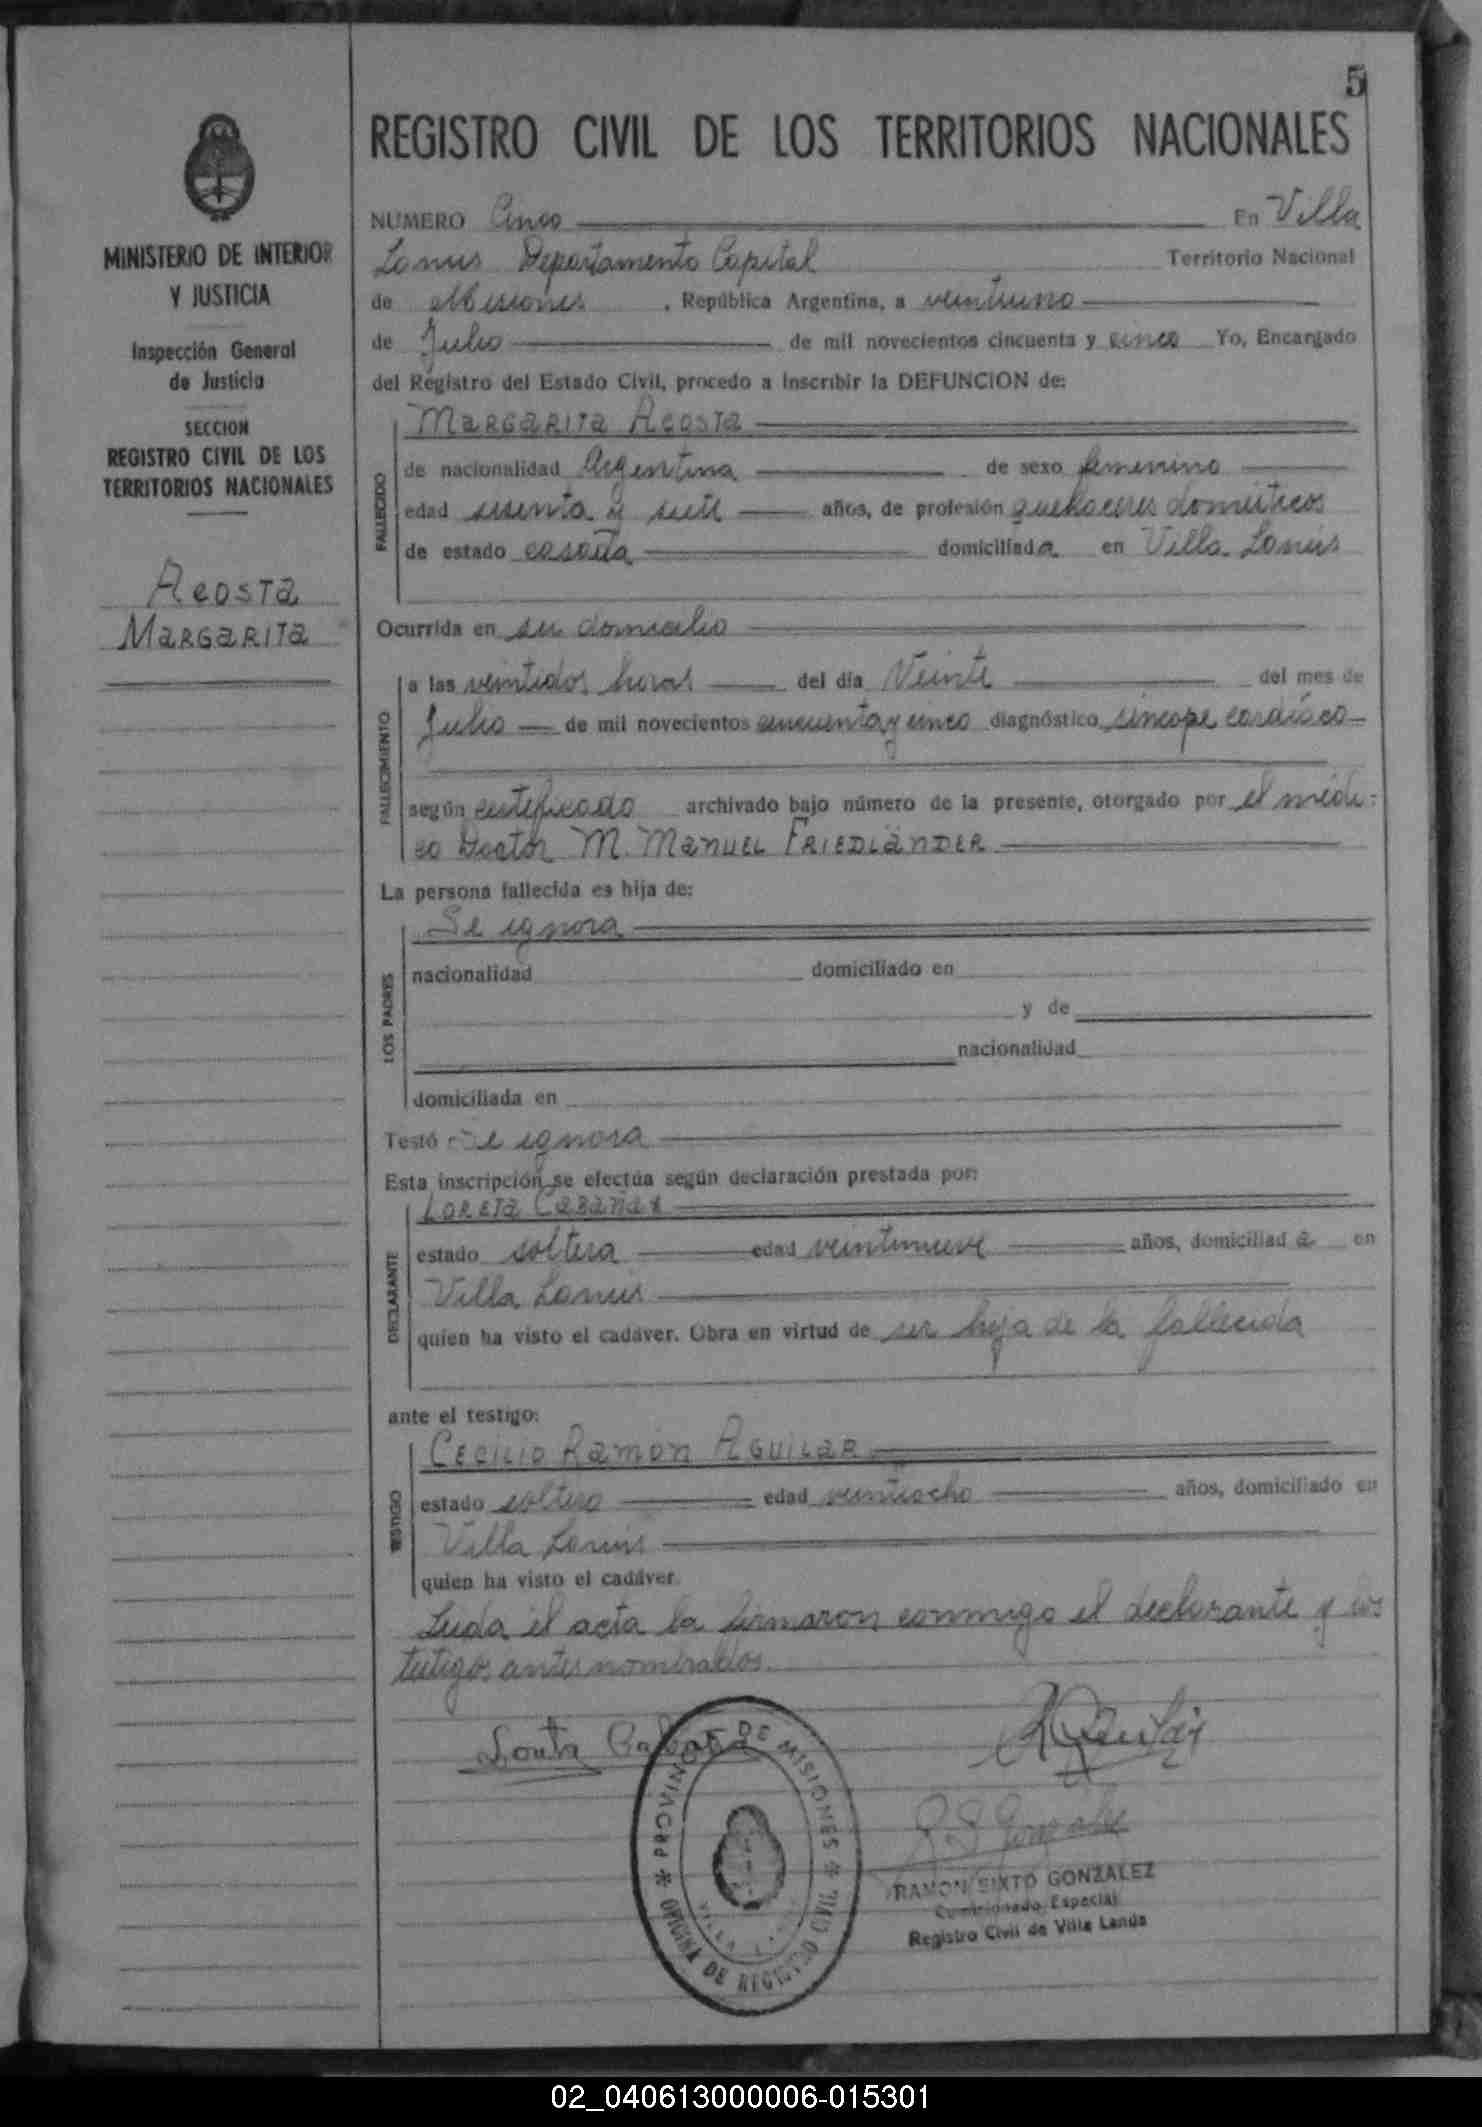 5
REGISTRO CIVIL DE LOS TERRITORIOS NACIONALES
MINISTERIO DE INTERIOR
Y JUSTICIA
Inspección General
de Justicia
SECCION
REGISTRO CIVIL DE LOS
TERRITORIOS NACIONALES
Acosta
Margarita
NUMERO Cinco En Villa
Lanus Departamento Capital Territorio Nacional
de Misiones , República Argentina, a veintiuno
de Julio de mil novecientos cincuenta y cinco Yo, Encargado
del Registro del Estado Civil, procedo a inscribir la DEFUNCION de:
Margarita Acosta
FALLECIDO
de nacionalidad Argentina de sexo femenino
edad sesenta y siete años, de profesión quehaceres domésticos
de estado casada domiciliada en Villa Lanús
Ocurrida en su domicilio
FALLECIMIENTO
a las veintidos horas del día Veinte del mes de
Julio de mil novecientos cincuenta y cinco diagnóstico síncope cardíaco
según certificado archivado bajo número de la presente, otorgado por el médi-
co Doctor M. Manuel Friedlander
La persona fallecida es hija de:
LOS PADRES
Se ignora
nacionalidad domiciliado en
y de
nacionalidad
domiciliada en
Testó Se ignora
Esta inscripción se efectúa según declaración prestada por:
DECLARANTE
Loreta Cabaña
estado soltera edad veintinueve años, domiciliada en
Villa Lanus
quien ha visto el cadáver. Obra en virtud de ser hija de la fallecida
ante el testigo:
TESTIGO
Cecilio Ramón Aguilar
estado soltero edad veintiocho años, domiciliado en
Villa Lanús
quien ha visto el cadáver.
Leida el acta la firmaron conmigo el declarante y los
testigos antes nombrados.
Loreta Cabaña
R Aguilar
R S Gonzalez
PROVINCIA DE MISIONES * OFICINA DE REGISTRO CIVIL *
RAMON SIXTO GONZALEZ
Comisionado Especial
Registro Civil de Villa Lanús
02_040613000006-015301